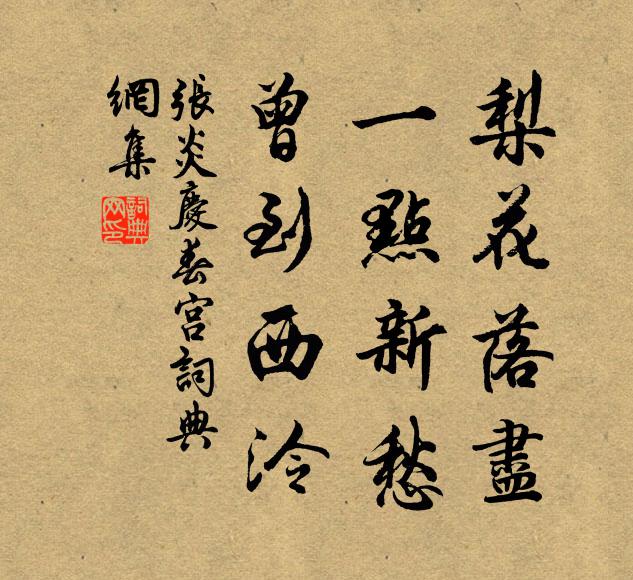 梨花落盡
一點新愁
曾到西泠
張炎慶春宮詞典
網集
詞典
网印